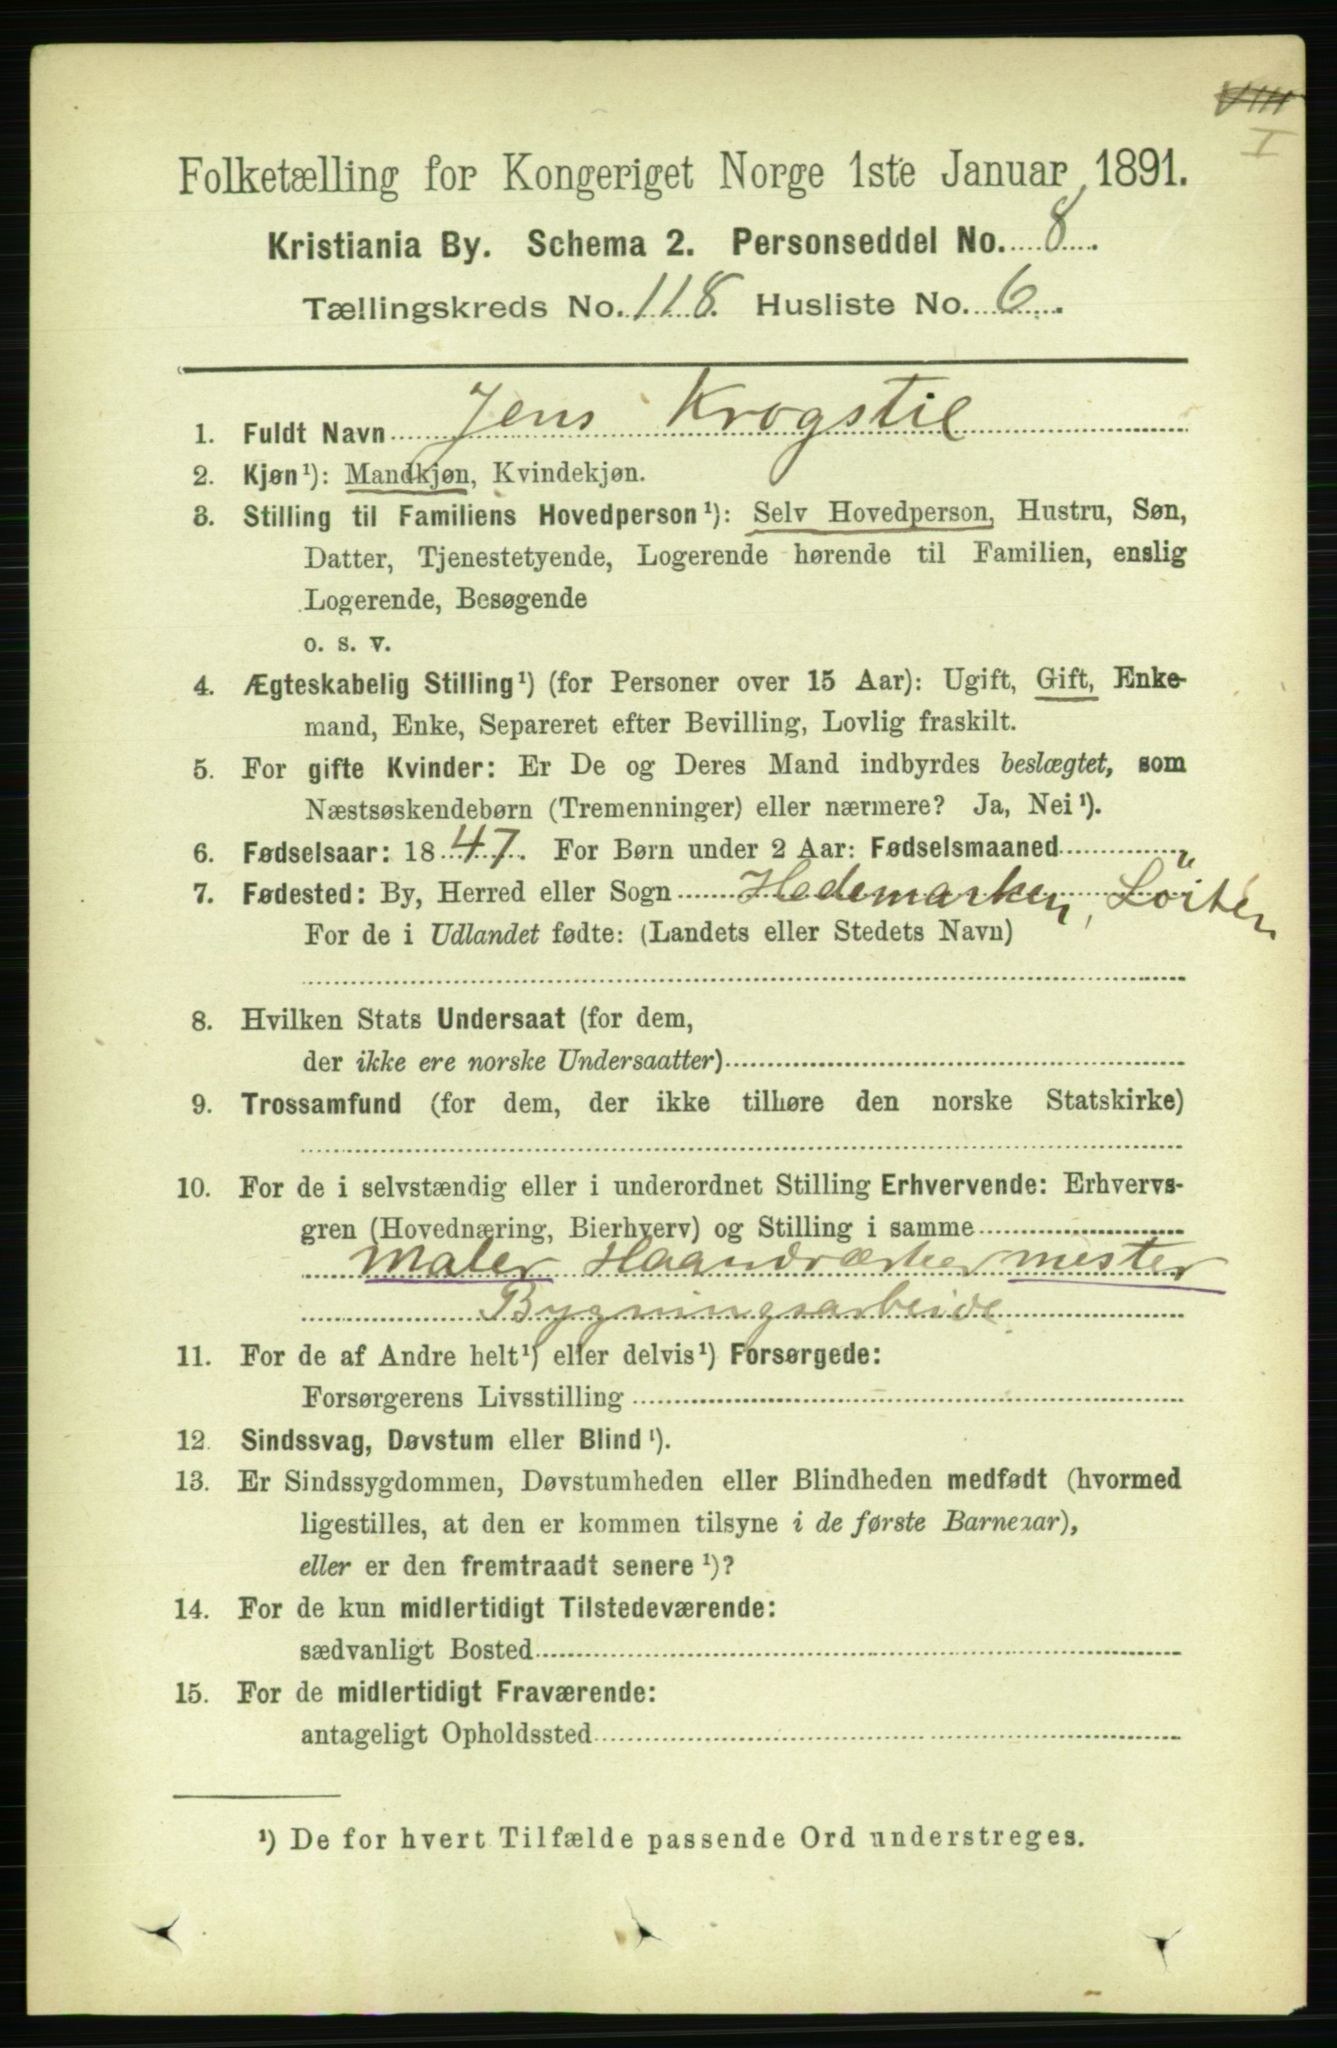 VIII
I
Folketælling for Kongeriget Norge 1ste Januar 1891.
Kristiania By. Schema 2. Personseddel No. 8.
Tællingskreds No. 118. Husliste No. 6.
1. Fuldt Navn Jens Krogstie
2. Kjøn¹): Mandkjøn, Kvindekjøn.
3. Stilling til Familiens Hovedperson¹): Selv Hovedperson, Hustru, Søn,
Datter, Tjenestetyende, Logerende hørende til Familien, enslig
Logerende, Besøgende
o. s. v.
4. Ægteskabelig Stilling¹) (for Personer over 15 Aar): Ugift, Gift, Enke-
mand, Enke, Separeret efter Bevilling, Lovlig fraskilt.
5. For gifte Kvinder: Er De og Deres Mand indbyrdes beslægtet, som
Næstsøskendebørn (Tremenninger) eller nærmere? Ja, Nei¹).
6. Fødselsaar: 1847. For Børn under 2 Aar: Fødselsmaaned
7. Fødested: By, Herred eller Sogn Hedemarken, Löiten
For de i Udlandet fødte: (Landets eller Stedets Navn)
8. Hvilken Stats Undersaat (for dem,
der ikke ere norske Undersaatter)
9. Trossamfund (for dem, der ikke tilhøre den norske Statskirke)
10. For de i selvstændig eller i underordnet Stilling Erhvervende: Erhvervs-
gren (Hovednæring, Bierhverv) og Stilling i samme
Maler Haandværker mester
Bygningsarbeide
11. For de af Andre helt¹) eller delvis¹) Forsørgede:
Forsørgerens Livsstilling
12. Sindssvag, Døvstum eller Blind¹).
13. Er Sindssygdommen, Døvstumheden eller Blindheden medfødt (hvormed
ligestilles, at den er kommen tilsyne i de første Barneaar),
eller er den fremtraadt senere¹)?
14. For de kun midlertidigt Tilstedeværende:
sædvanligt Bosted
15. For de midlertidigt Fraværende:
antageligt Opholdssted
¹) De for hvert Tilfælde passende Ord understreges.